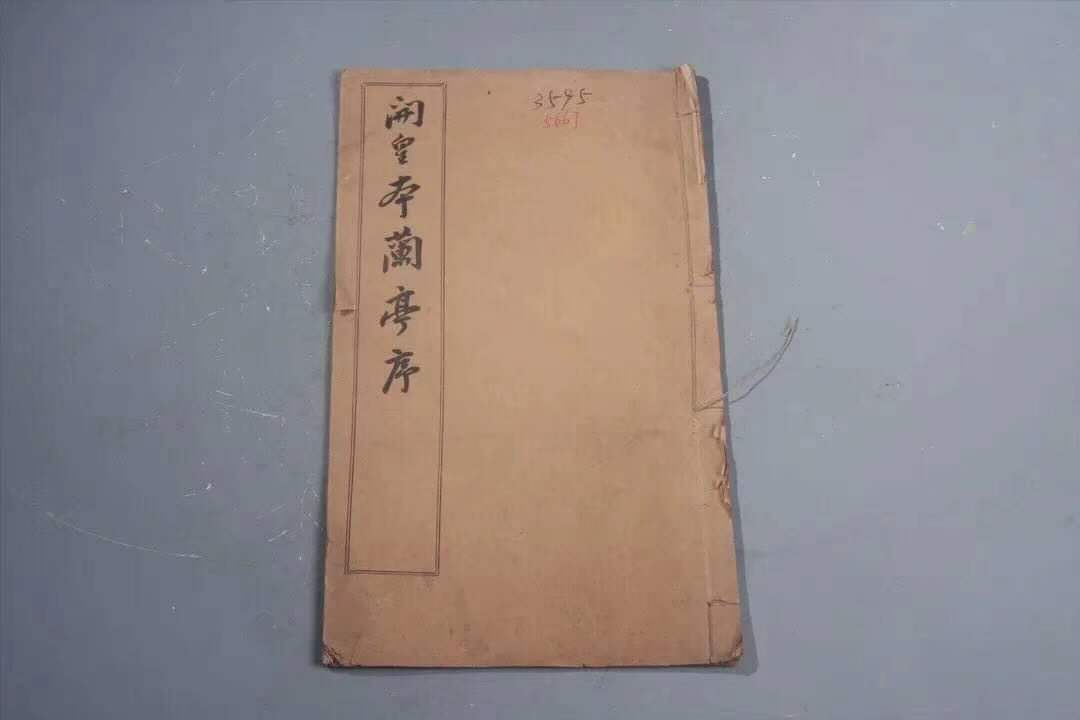 開皇本蘭亭序
3595
5667